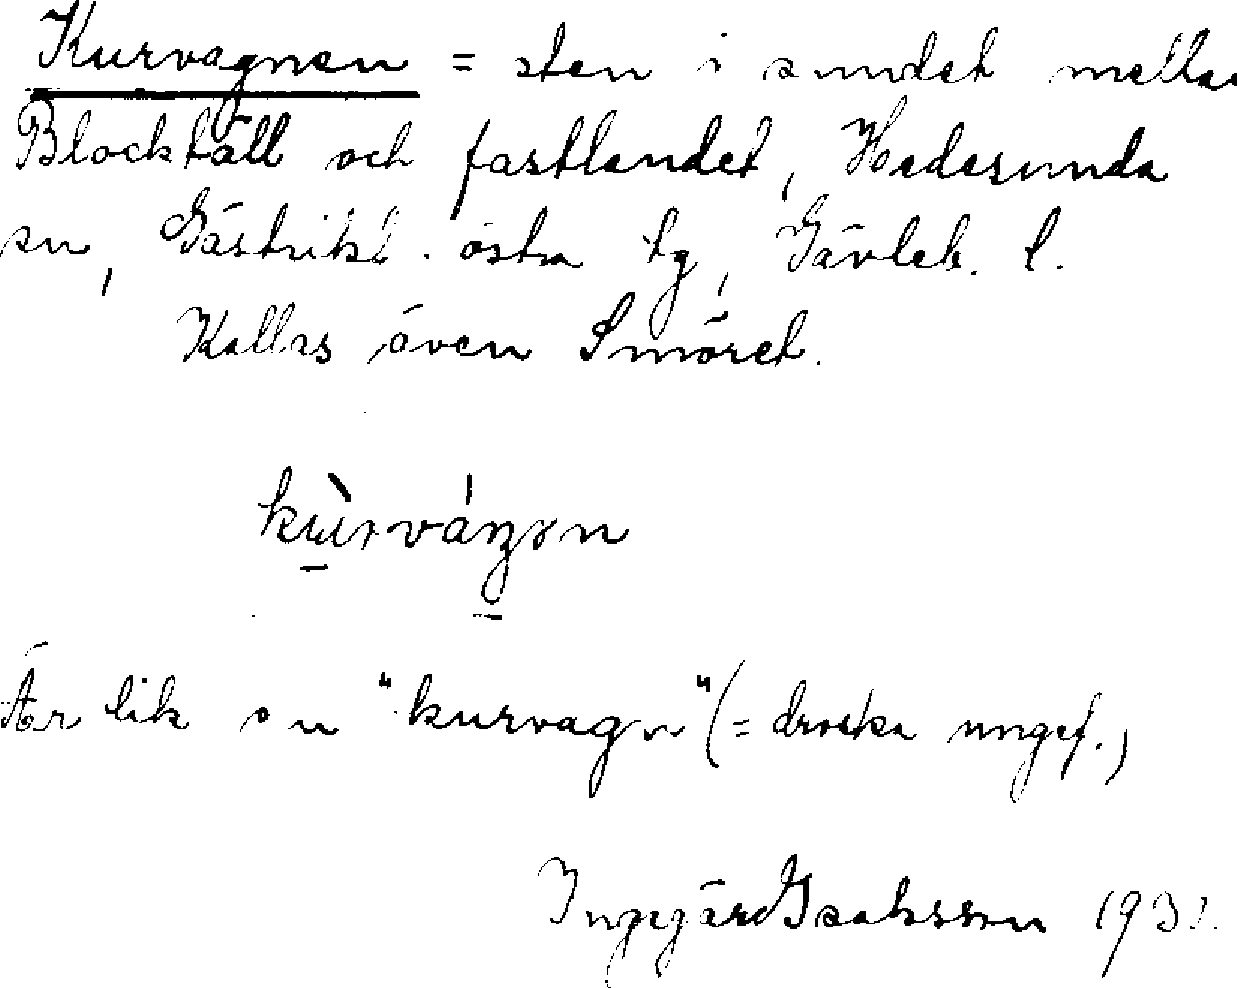 Kurvagnen = sten i sundet mellan
Blocktäll och fastlandet, Hedesunda
sn, Gästrikl. östra tg, Gävleb. l.
Kallas även Smöret.
Är lik en "kurvagn" (= droska ungef.)
Ingegärd Isaksson